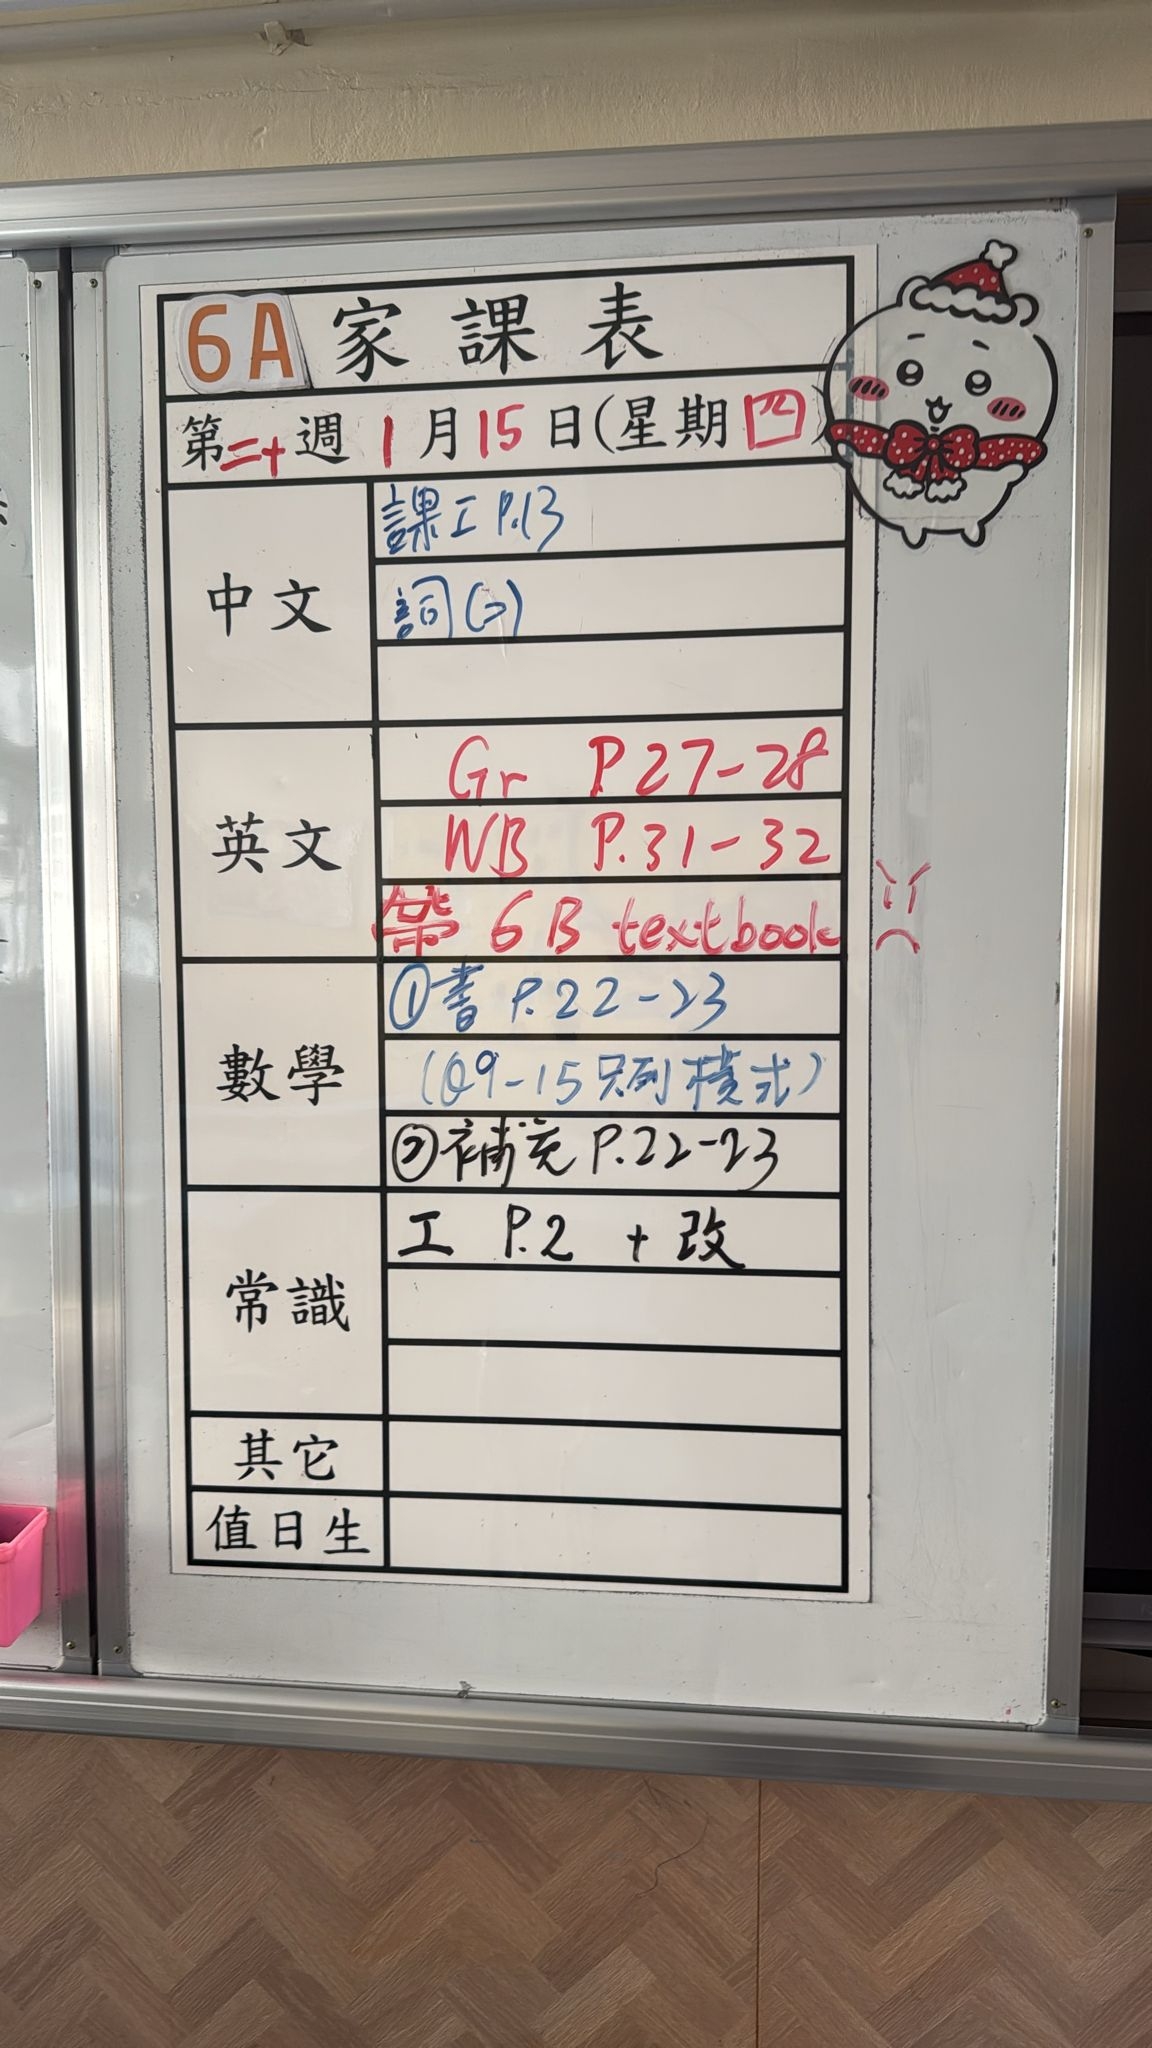 6A 家課表
第二十週 1月15日(星期四)
中文
課工 P.13
詞(二)
英文
Gr P.27-28
WB P.31-32
帶 6B textbook
數學
①書 P.22-23
(Q9-15只列橫式)
②補充 P.22-23
常識
工 P.2 + 改
其它
值日生